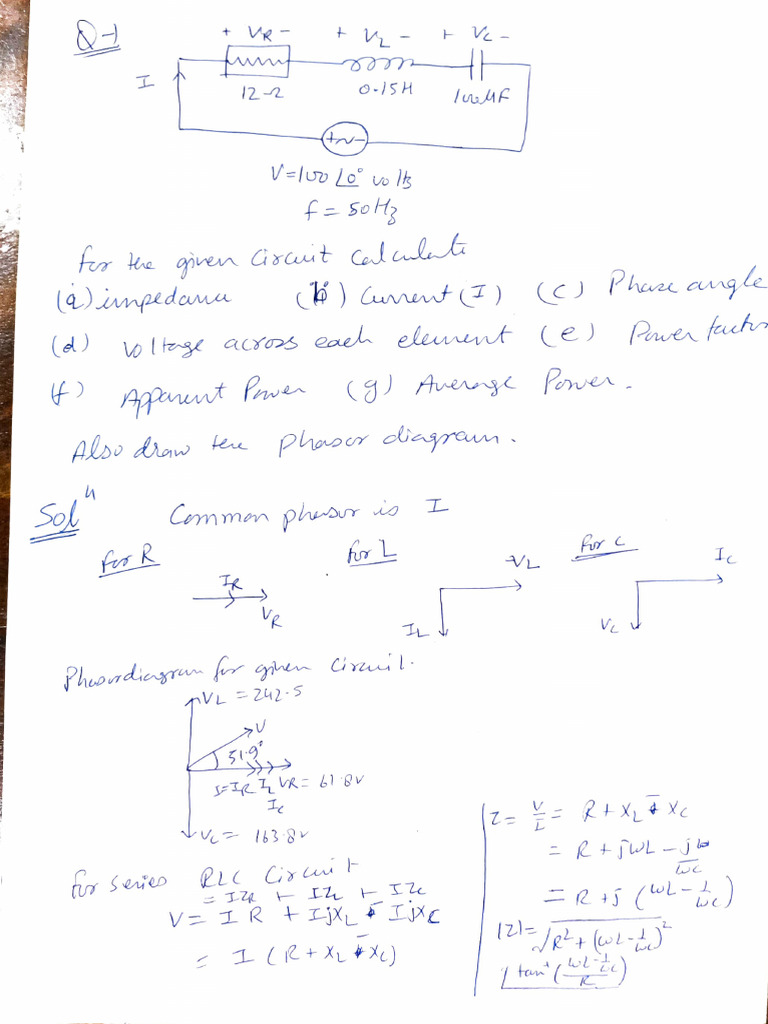 Q-1
+ VR - + VL - + VC -
I
12Ω 0.15H 100μF
+~-
V=100∠0° volts
f = 50Hz
for the given circuit calculate
(a) impedance (b) Current (I) (c) Phase angle
(d) voltage across each element (e) Power factor
(f) Apparent Power (g) Average Power.
Also draw the phasor diagram.
Solⁿ Common phasor is I
for R for L for C
IR VR
VL IL
IC VC
Phasor diagram for given circuit.
VL = 242.5
V
51.9°
I=IR IL VR= 61.8v
IC
VC = 163.8v
for series RLC circuit
= IZR + IZL + IZC
V = IR + IjXL - IjXC
= I (R + XL - XC)
Z = V/I = R + XL - XC
= R + jωL - j/ωC
= R + j (ωL - 1/ωC)
|Z| = √R² + (ωL - 1/ωC)²
∠tan⁻¹ (ωL - 1/ωC / R)